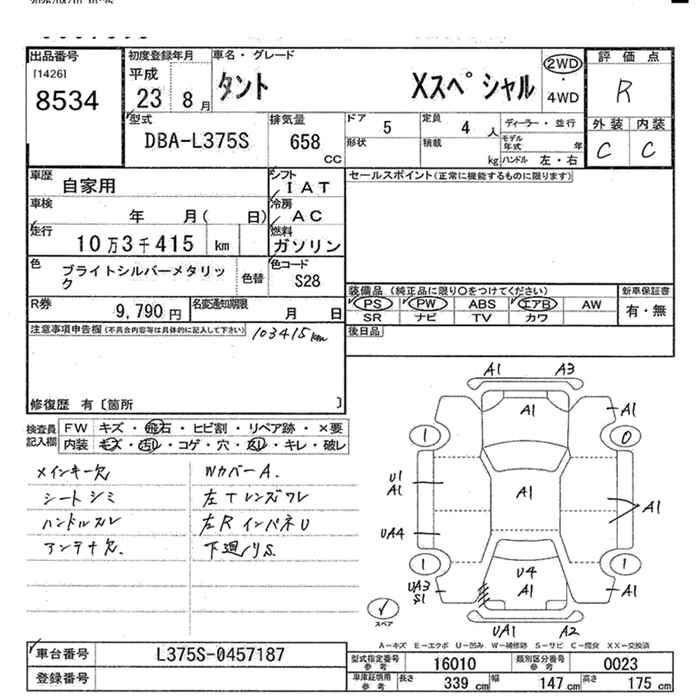 出品番号
[1426]
8534
初度登録年月
平成
23 8 月
車名・グレード
タント Xスペシャル
2WD
・
4WD
評価点
R
外装 内装
C C
型式
DBA-L375S
排気量
658
CC
ドア 5
定員 4 人
ディーラー・並行
形状
積載 kg
モデル年式 年
ハンドル 左・右
車歴
自家用
シフト
IAT
セールスポイント(正常に機能するものに限ります)
車検
年 月( 日)
冷房
AC
走行
10万3千415 km
燃料
ガソリン
色
ブライトシルバーメタリック
色替
色コード
S28
装備品 (純正品に限り○をつけてください)
新車保証書
PS PW ABS エアB AW
有・無
SR ナビ TV カワ
R券
9,790 円
名変通知期限
月 日
後日品
注意事項申告欄(不具合内容等は具体的に記入して下さい)
103415km
修復歴 有〔箇所 〕
検査員記入欄
FW キズ・飛石・ヒビ割・リペア跡・×要
内装 キズ・汚レ・コゲ・穴・返し・キレ・破レ
メインキー欠 WカバーA.
シートシミ 左Tレンズワレ
ハンドルスレ 左RインパネU
アンテナ欠. 下廻りS.
A1 A3
A1 A1
1 0
U1
A1
A1 A1
UA4
1 1
UA3
S1
U4
A1 A1
スペア
UA1 A2
A-キズ E-エクボ U-凹み W-補修跡 S-サビ C-腐食 XX-交換済
車台番号 L375S-0457187
登録番号
型式指定番号 参考 16010
類別区分番号 参考 0023
車庫証明用 参考 長さ 339 cm 幅 147 cm 高さ 175 cm